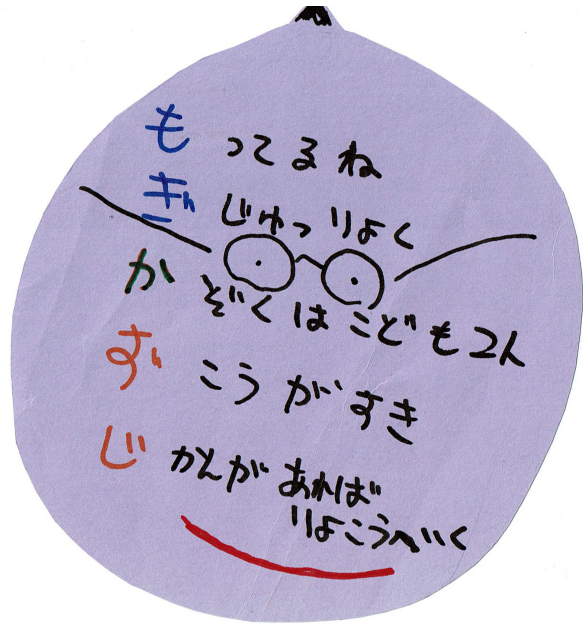 もってるね
ぎじゅつりょく
かぞくはこども2人
ずこうがすき
じかんがあれば
りょこうへいく